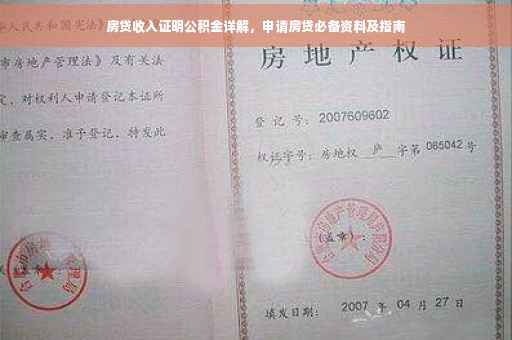 房贷收入证明公积金详解，申请房贷必备资料及指南
人民共和国宪法》及
市房地产管理法》及有关法
定，对权利人申请登记本证所
审查属实，准予登记，特发此
房地产权证
登记号：2007609602
权证字号：房地权 庐 字第 085042 号
（盖章）：
填发日期： 2007 年 04 月 27 日